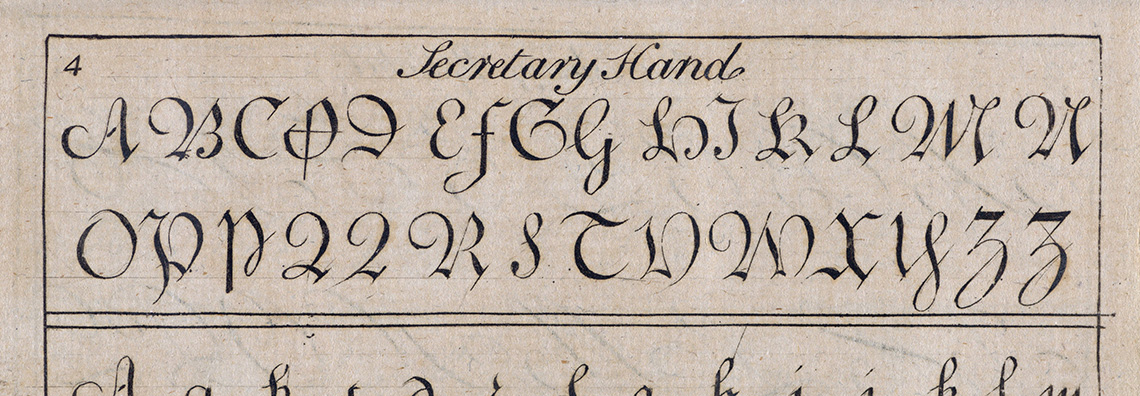 4 Secretary Hand
A B C D D E F G G H I K L M N
O P P Q Q R S T V W X Y Z Z